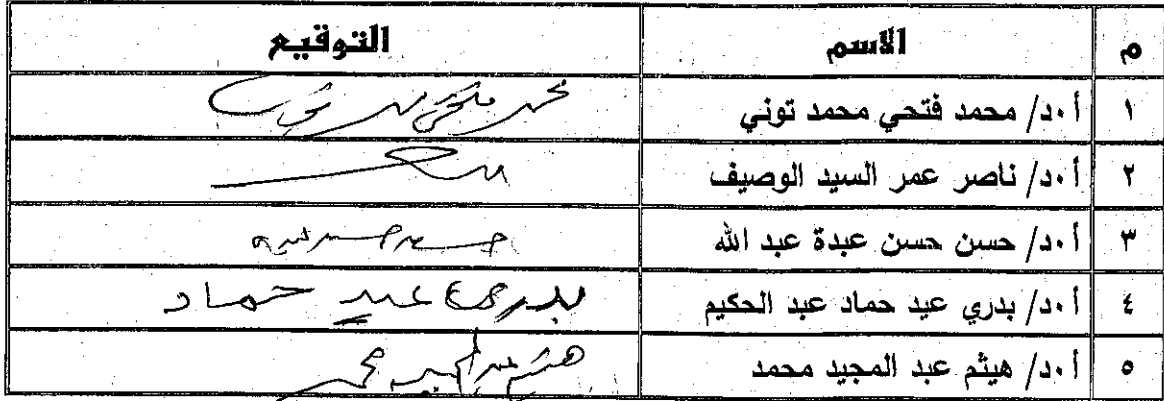 م الاسم التوقيع
١ أ.د/ محمد فتحي محمد توني
٢ أ.د/ ناصر عمر السيد الوصيف
٣ أ.د/ حسن حسن عبدة عبد الله
٤ أ.د/ بدري عيد حماد عبد الحكيم بدري عيد حماد
٥ أ.د/ هيثم عبد المجيد محمد هيثم عبد المجيد محمد